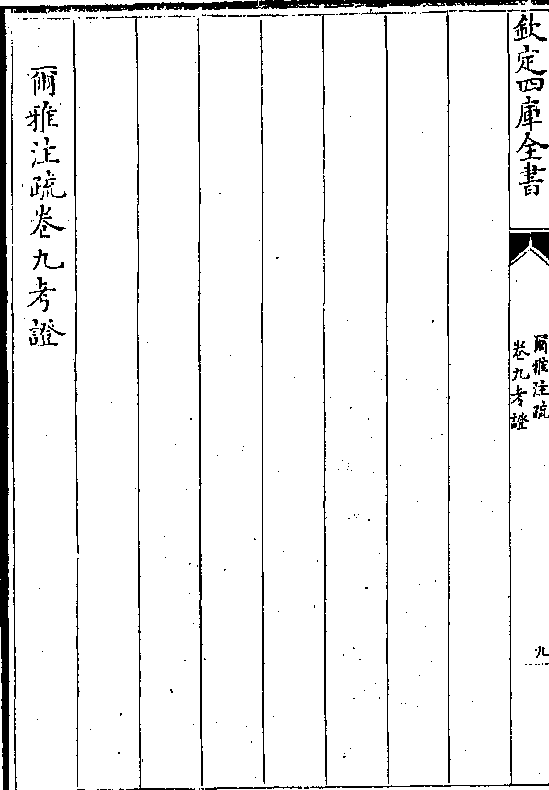 欽定四庫全書
爾雅注疏
卷九考證
九
爾雅注疏卷九考證